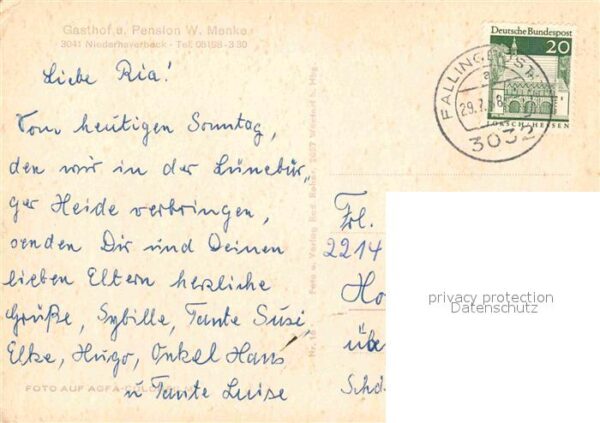 Gasthof u. Pension W. Menke
3041 Niederhaverbeck - Tel. 05198-330
Deutsche Bundespost
20
LORSCH / HESSEN
FALLINGBOSTEL
a
29.7.68
3032
Liebe Ria!
Vom heutigen Sonntag,
den wir in der Lünebür,
ger Heide verbringen,
senden Dir und Deinen
lieben Eltern herzliche
Grüße, Sybille, Tante Susi
Elke, Hugo, Onkel Hans
u Tante Luise
Foto u. Verlag
Frl.
2214
Ho
übe
Schö
privacy protection
Datenschutz
FOTO AUF AGFA-COLOR